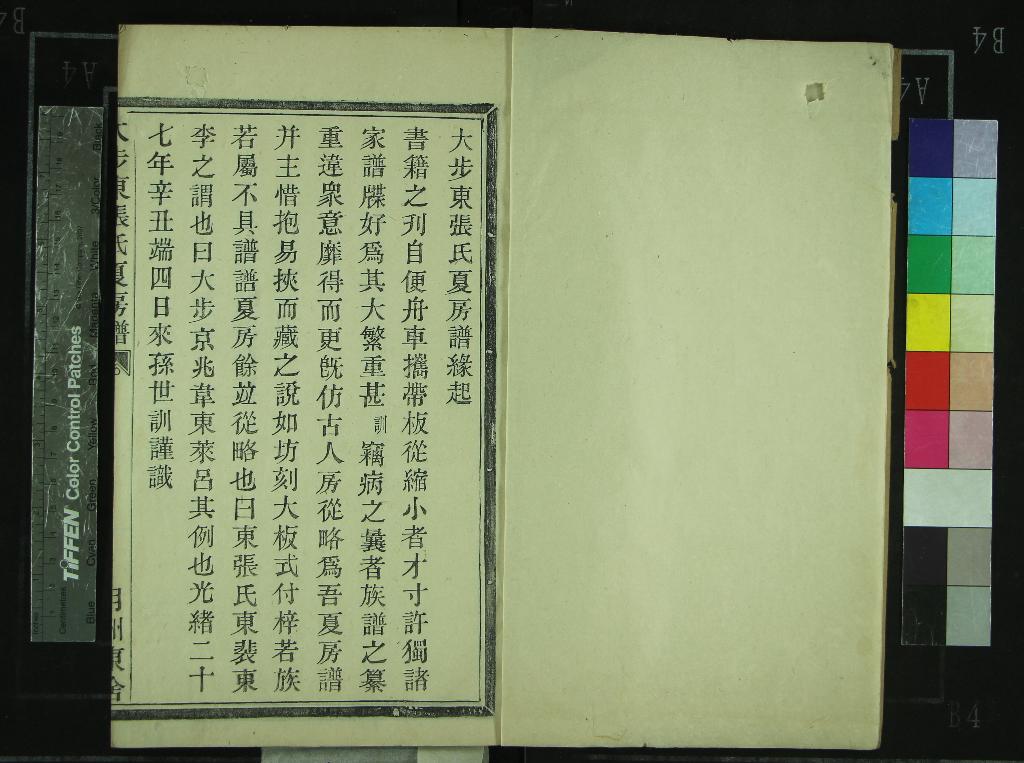 大步東張氏夏房譜緣起
書籍之刋自便舟車攜帶板從縮小者才寸許獨諸
家譜牒好爲其大繁重甚訓竊病之曩者族譜之纂
重違衆意靡得而更旣仿古人房從略爲吾夏房譜
并主惜抱易挾而藏之說如坊刻大板式付梓若族
若屬不具譜譜夏房餘竝從略也曰東張氏東裴東
李之謂也曰大步京兆韋東萊呂其例也光緒二十
七年辛丑端四日來孫世訓謹識
大步東張氏夏房譜
月州東舍
TIFFEN Color Control Patches
Blue
Cyan
Green
Yellow
Red
Magenta
White
3/Color
Black
Centimetres
Inches
A4
A4
B4
B4